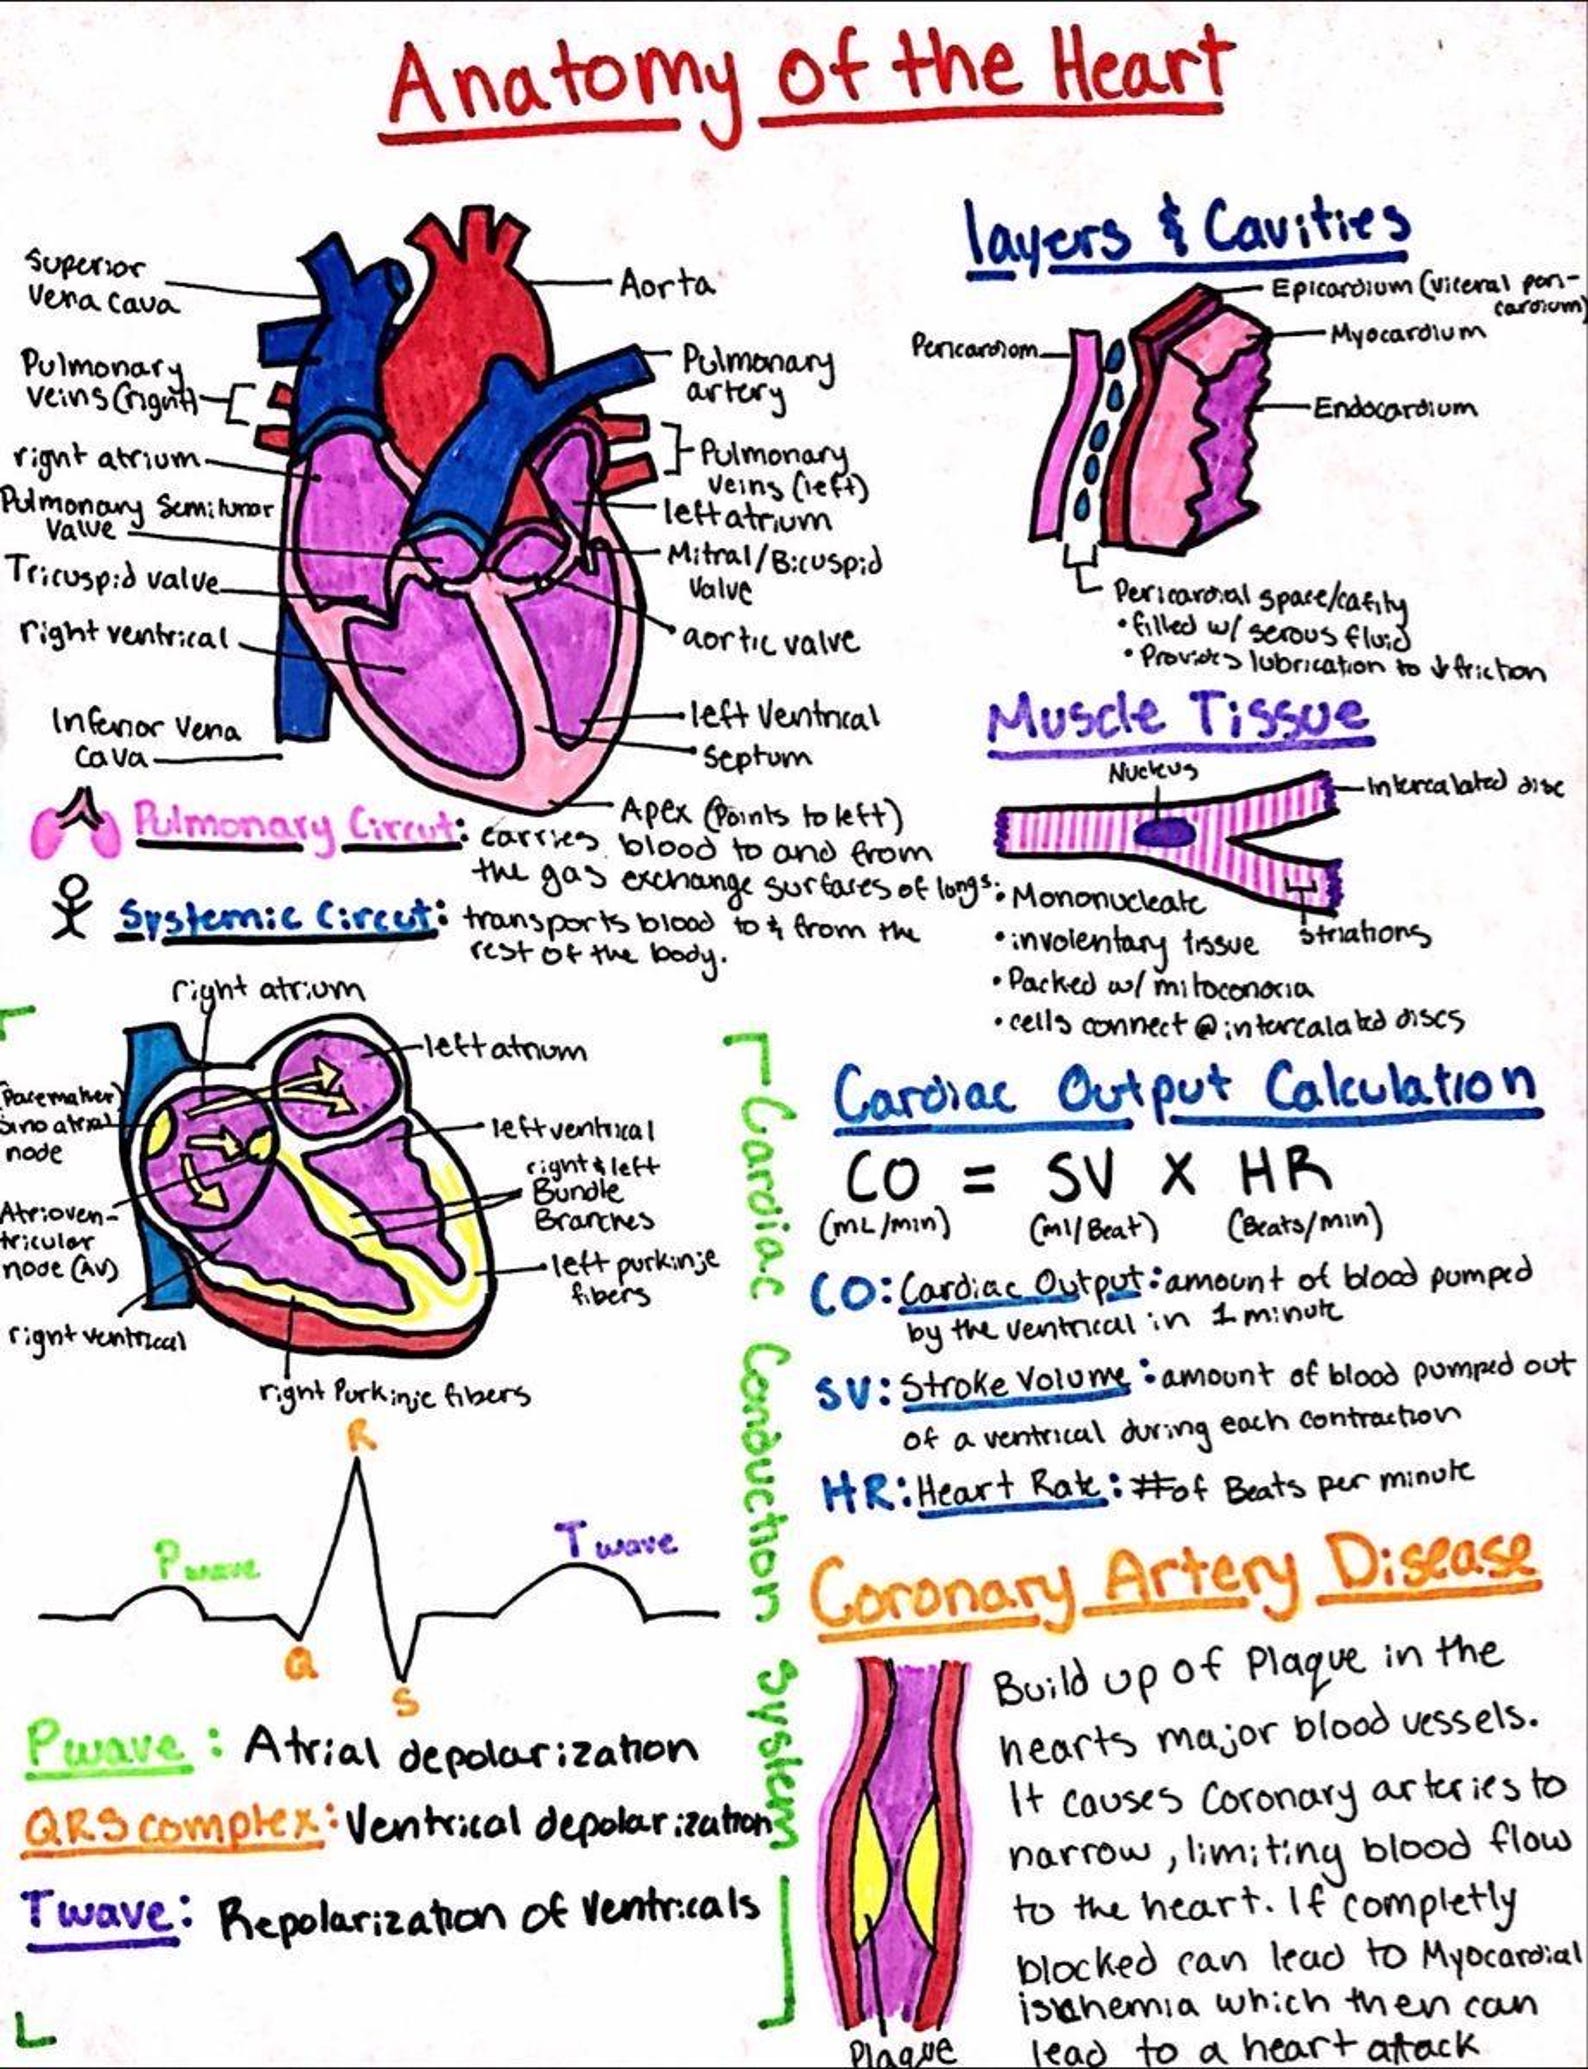 Anatomy of the Heart
Superior
Vena Cava
Pulmonary
veins (right)
right atrium
Pulmonary Semilunar
Valve
Tricuspid valve
right ventrical
Inferior Vena
Cava
Aorta
Pulmonary
artery
Pulmonary
Veins (left)
left atrium
Mitral/Bicuspid
Valve
aortic valve
left Ventrical
Septum
Apex (Points to left)
Pulmonary Circut: carries blood to and from
the gas exchange surfaces of longs.
Systemic Circut: transports blood to & from the
rest of the body.
layers & Cavities
Pericardiom
Epicardium (viceral peri-
cardium)
Myocardium
Endocardium
Pericardial space/cafity
• filled w/ serous fluid
• Provides lubrication to ↓ friction
Muscle Tissue
Nucleus
Intercalated disc
striations
• Mononucleate
• involentary tissue
• Packed w/ mitoconoria
• cells connect @ intercalated discs
right atrium
left atrium
Pacemaker)
Sino atrial
node
Atrioven-
tricular
node (AV)
right ventrical
left ventrical
right & left
Bundle
Branches
left purkinje
fibers
right Purkinje fibers
Cardiac Conduction System
P wave
Q
R
S
T wave
P wave: Atrial depolarization
QRS complex: Ventrical depolarization
T wave: Repolarization of Ventricals
Cardiac Output Calculation
CO = SV X HR
(mL/min) (ml/Beat) (Beats/min)
CO: Cardiac Output: amount of blood pumped
by the ventrical in 1 minute
SV: Stroke Volume: amount of blood pumped out
of a ventrical during each contraction
HR: Heart Rate: # of Beats per minute
Coronary Artery Disease
Build up of Plaque in the
hearts major blood vessels.
It causes coronary arteries to
narrow, limiting blood flow
to the heart. If completly
blocked can lead to Myocardial
ischemia which then can
lead to a heart attack
Plaque